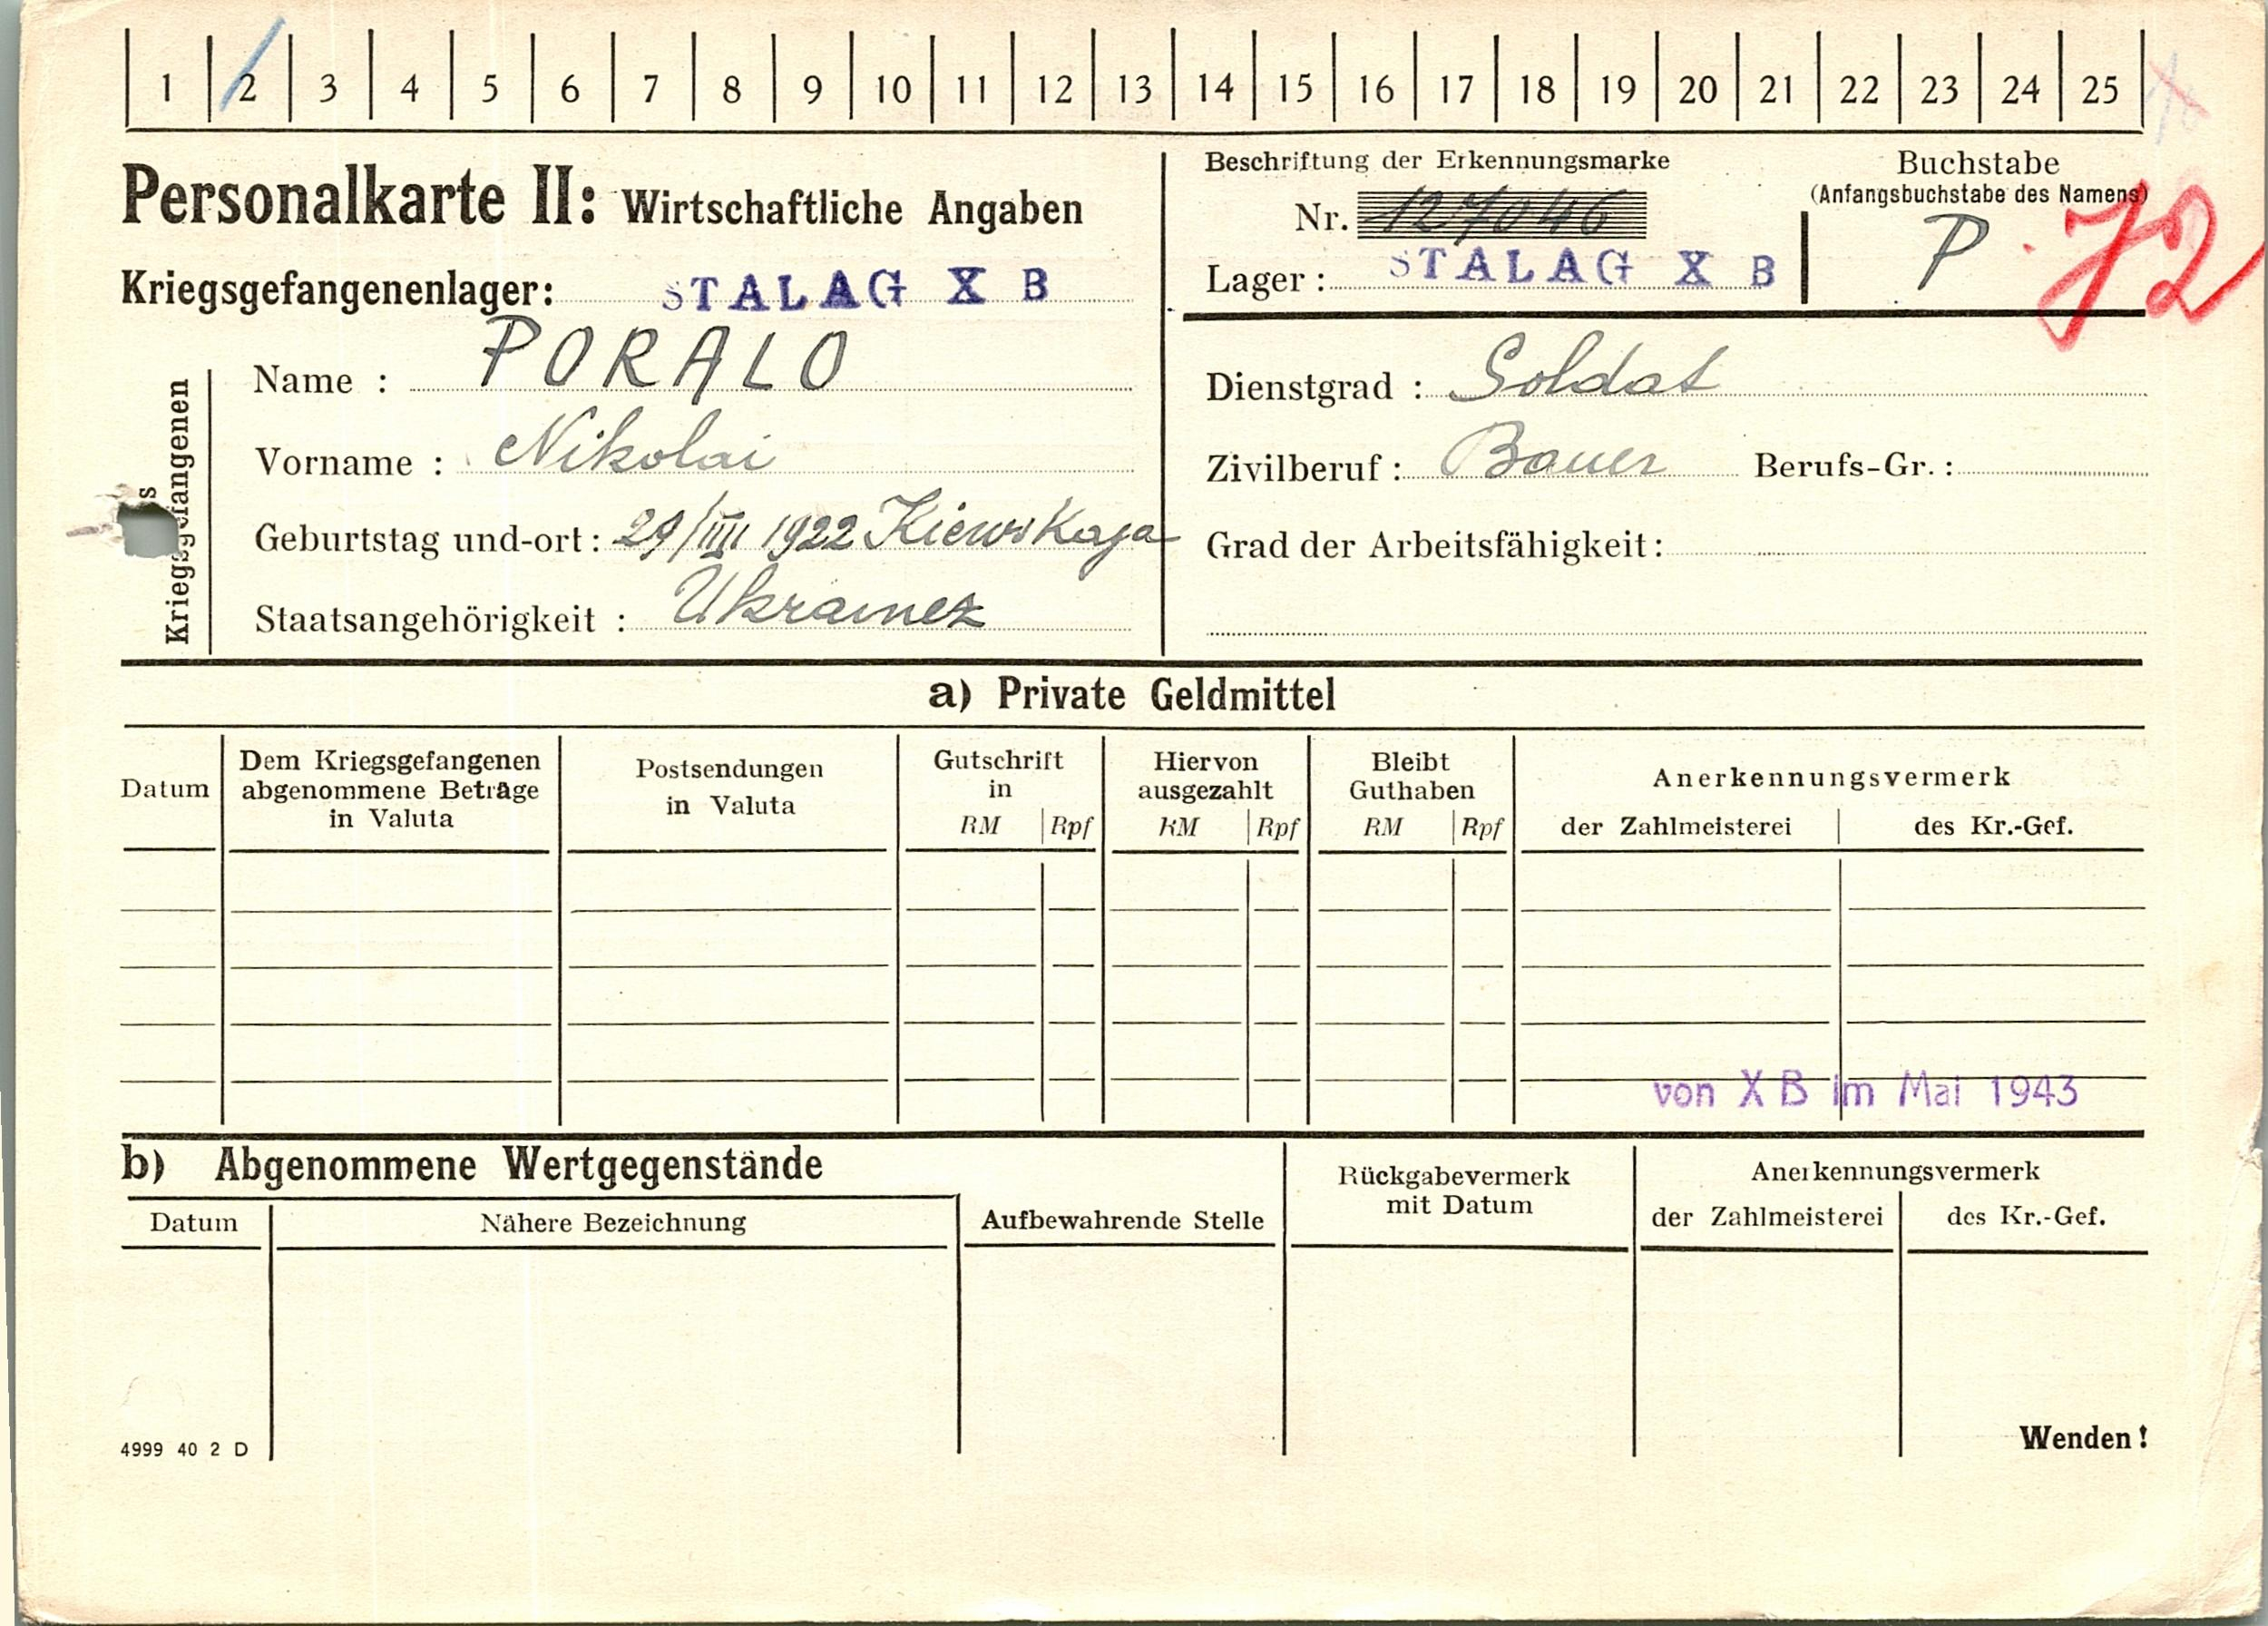 1 2 3 4 5 6 7 8 9 10 11 12 13 14 15 16 17 18 19 20 21 22 23 24 25
Personalkarte II: Wirtschaftliche Angaben
Kriegsgefangenenlager: STALAG X B
Beschriftung der Erkennungsmarke
Nr. 127046
Lager: STALAG X B
Buchstabe
(Anfangsbuchstabe des Namens)
P 72
Kriegsgefangenen
Name : PORALO
Vorname : Nikolai
Geburtstag und-ort: 29/III 1922 Kiewskaja
Staatsangehörigkeit : Ukrainez
Dienstgrad : Soldat
Zivilberuf: Bauer Berufs-Gr.:
Grad der Arbeitsfähigkeit:
a) Private Geldmittel
Datum
Dem Kriegsgefangenen
abgenommene Beträge
in Valuta
Postsendungen
in Valuta
Gutschrift
in
RM Rpf
Hiervon
ausgezahlt
RM Rpf
Bleibt
Guthaben
RM Rpf
Anerkennungsvermerk
der Zahlmeisterei des Kr.-Gef.
von X B im Mai 1943
b) Abgenommene Wertgegenstände
Datum
Nähere Bezeichnung
Aufbewahrende Stelle
Rückgabevermerk
mit Datum
Anerkennungsvermerk
der Zahlmeisterei des Kr.-Gef.
4999 40 2 D
Wenden!